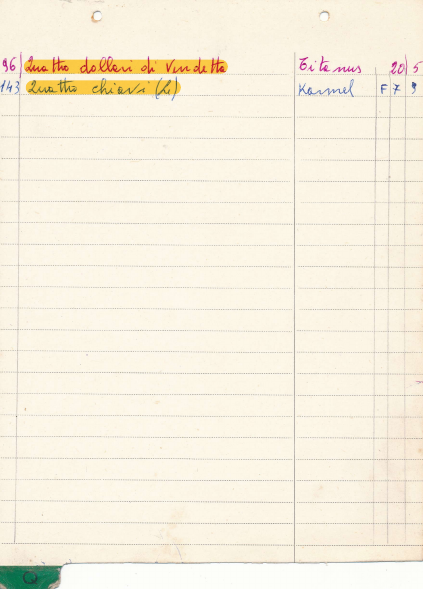 96 Quattro dollari di vendetta Titanus 20 5
143 Quattro chiavi (Le) Karmel F 7 9